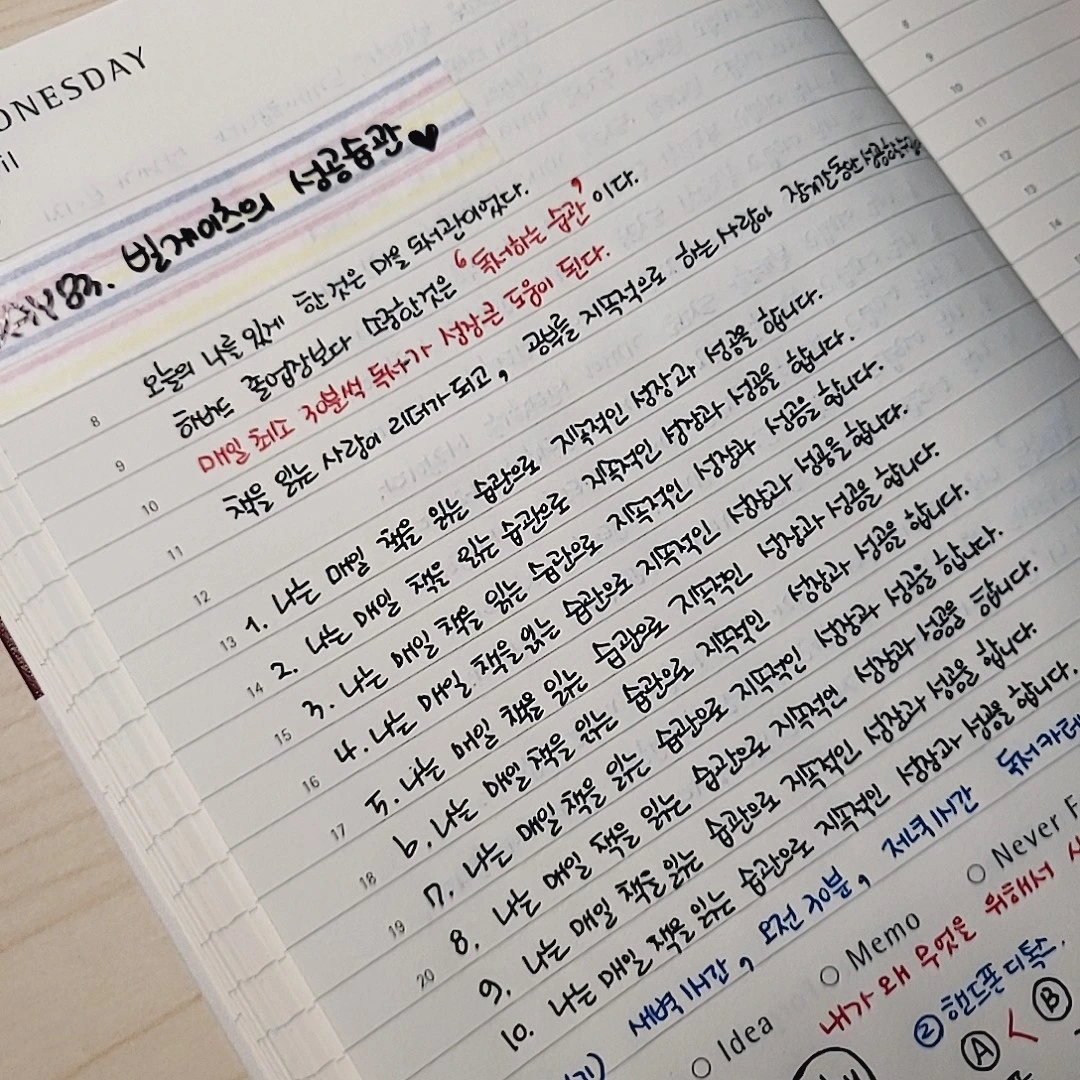 WEDNESDAY
빌게이츠의 성공습관♥
오늘의 나를 있게 한 것은 마을 도서관이었다.
하버드 졸업장보다 소중한것은 '독서하는 습관' 이다.
매일 최소 30분씩 독서가 성장큰 도움이 된다.
책을 읽는 사람이 리더가 되고, 공부를 지속적으로 하는 사람이 장기간동안
1. 나는 매일 책을 읽는 습관으로 지속적인 성장과 성공을 합니다.
2. 나는 매일 책을 읽는 습관으로 지속적인 성장과 성공을 합니다.
3. 나는 매일 책을 읽는 습관으로 지속적인 성장과 성공을 합니다.
4. 나는 매일 책을 읽는 습관으로 지속적인 성장과 성공을 합니다.
5. 나는 매일 책을 읽는 습관으로 지속적인 성장과 성공을 합니다.
6. 나는 매일 책을 읽는 습관으로 지속적인 성장과 성공을 합니다.
7. 나는 매일 책을 읽는 습관으로 지속적인 성장과 성공을 합니다.
8. 나는 매일 책을 읽는 습관으로 지속적인 성장과 성공을 합니다.
9. 나는 매일 책을 읽는 습관으로 지속적인 성장과 성공을 합니다.
10. 나는 매일 책을 읽는 습관으로 지속적인 성장과 성공을 합니다.
새벽 1시간, 오전 30분, 저녁 1시간 독서카페
○ Idea ○ Memo ○ Never
내가 왜 무엇을 위해서
② 핸드폰 디톡스.
Ⓐ < Ⓑ
8
9
10
11
12
13
14
15
16
17
18
19
20
8
9
10
11
12
13
14